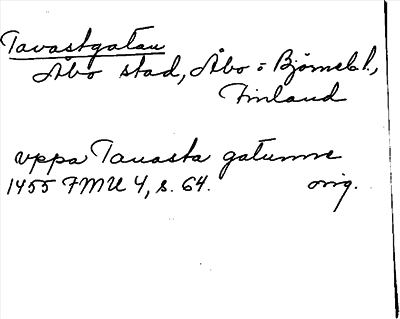 Tavastgatan
Åbo stad, Åbo = Björneb. l.,
Finland
vppa Tauasta gatunne
1455 FMU 4, s. 64. orig.